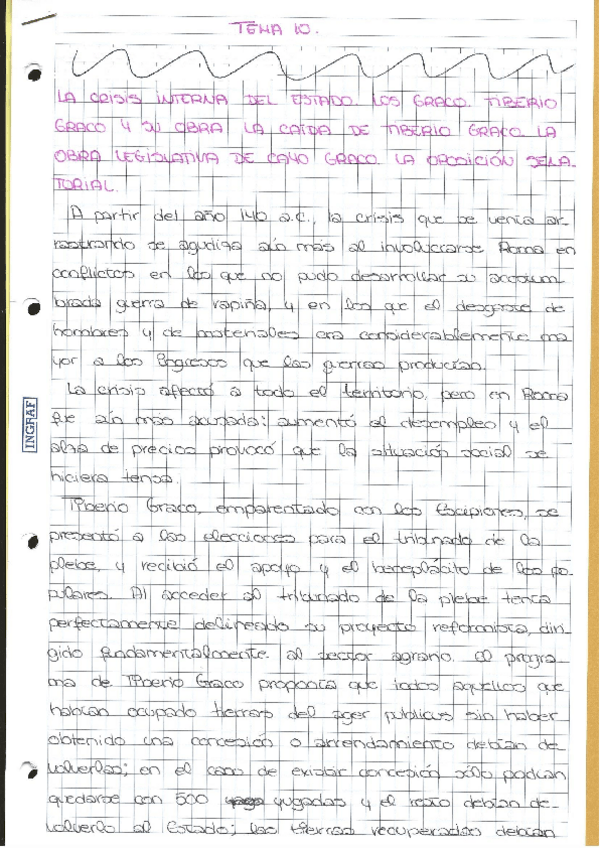 TEMA 10.
LA CRISIS INTERNA DEL ESTADO. LOS GRACO. TIBERIO
GRACO Y SU OBRA. LA CAÍDA DE TIBERIO GRACO. LA
OBRA LEGISLATIVA DE CAYO GRACO. LA OPOSICIÓN SENA-
TORIAL.
A partir del año 140 a.C., la crisis que se venía ar-
rastrando se agudiza aún más al involucrarse Roma en
conflictos en los que no pudo desarrollar su acostum
brada guerra de rapiña, y en los que el desgaste de
hombres y de materiales era considerablemente ma
yor a los ingresos que las guerras producían.
La crisis afectó a todo el territorio, pero en Roma
fue aún más acusada: aumentó el desempleo y el
alza de precios provocó que la situación social se
hiciera tensa.
Tiberio Graco, emparentado con los Escipiones, se
presentó a las elecciones para el tribunado de la
plebe, y recibió el apoyo y el beneplácito de los po-
pulares. Al acceder al tribunado de la plebe tenía
perfectamente delineado su proyecto reformista, diri-
gido fundamentalmente al sector agrario. El progra-
ma de Tiberio Graco proponía que todos aquellos que
habían ocupado tierras del ager publicus sin haber
obtenido una concesión o arrendamiento debían de-
volverlas; en el caso de existir concesión sólo podían
quedarse con 500 yugadas y el resto debían de-
volverlo al Estado; las tierras recuperadas debían
INGRAF